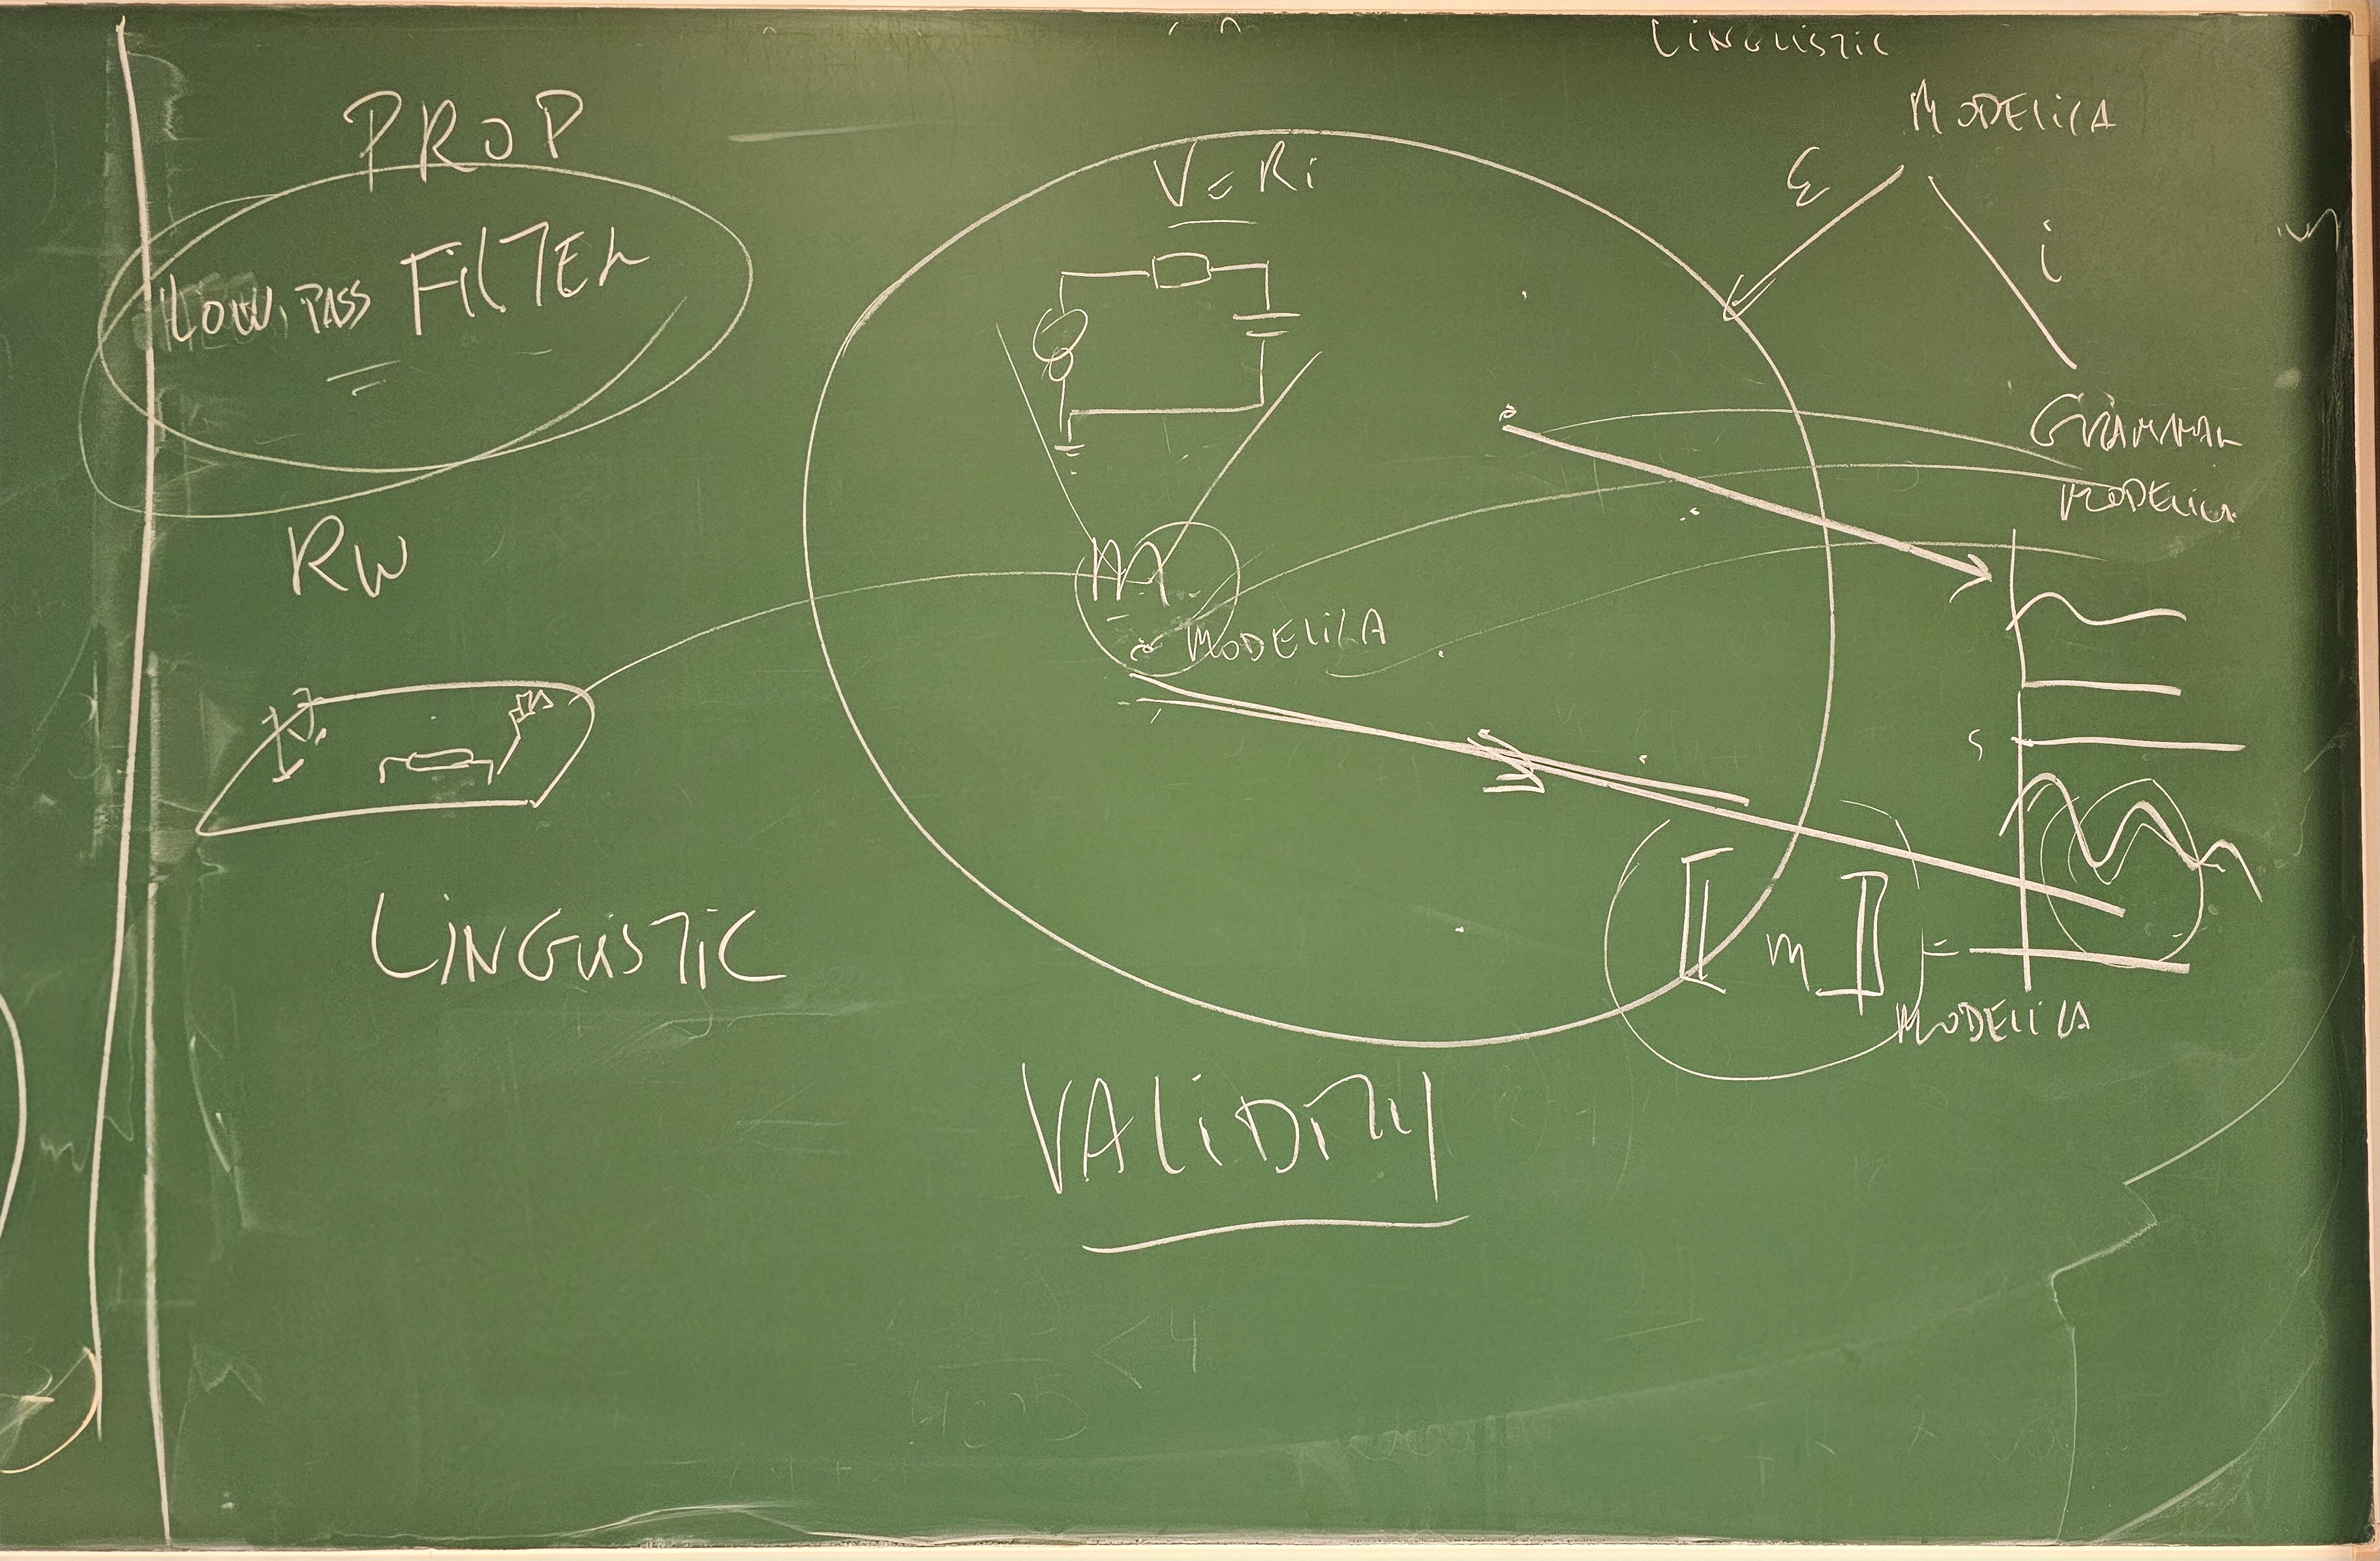 LINGUISTIC
PROP
MODELICA
VERi
ε
LOW PASS FILTER
i
GRAMMAR
MODELICA
RW
m
MODELICA
S
LINGUISTIC
⟦ m ⟧ =
MODELICA
VALIDITY
< 4